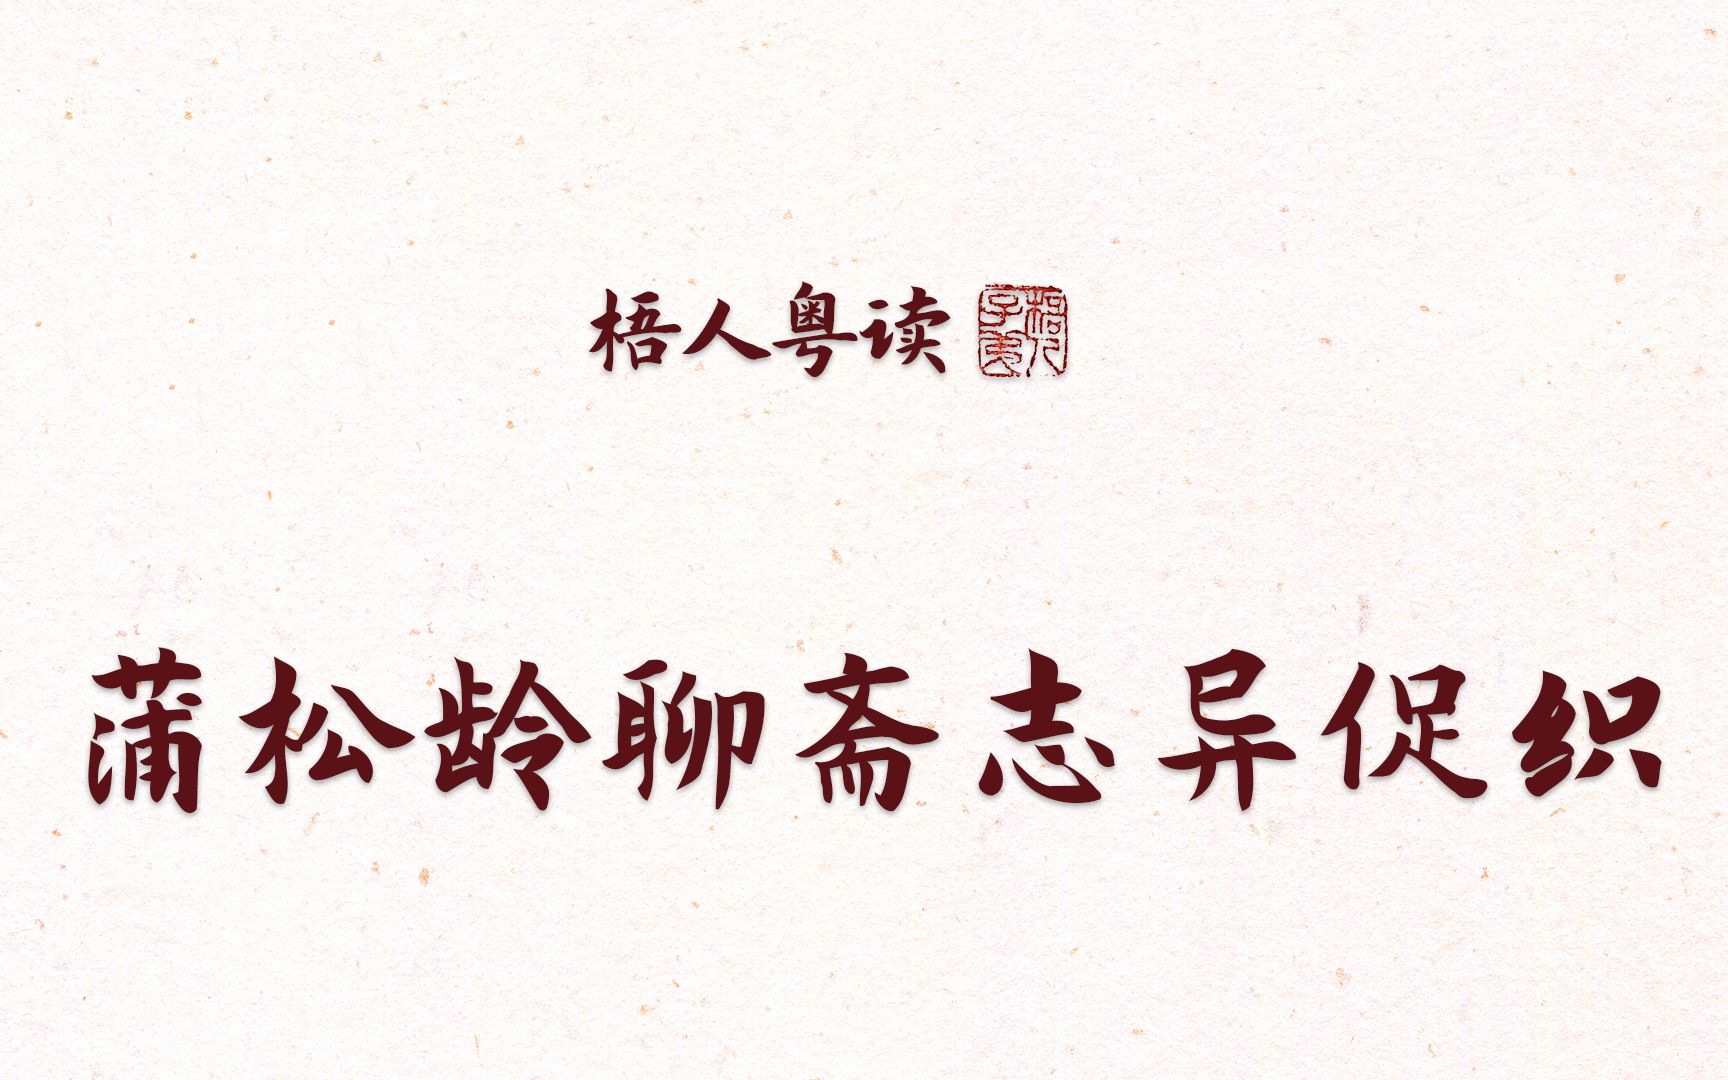 梧人粤读
蒲松龄聊斋志异促织